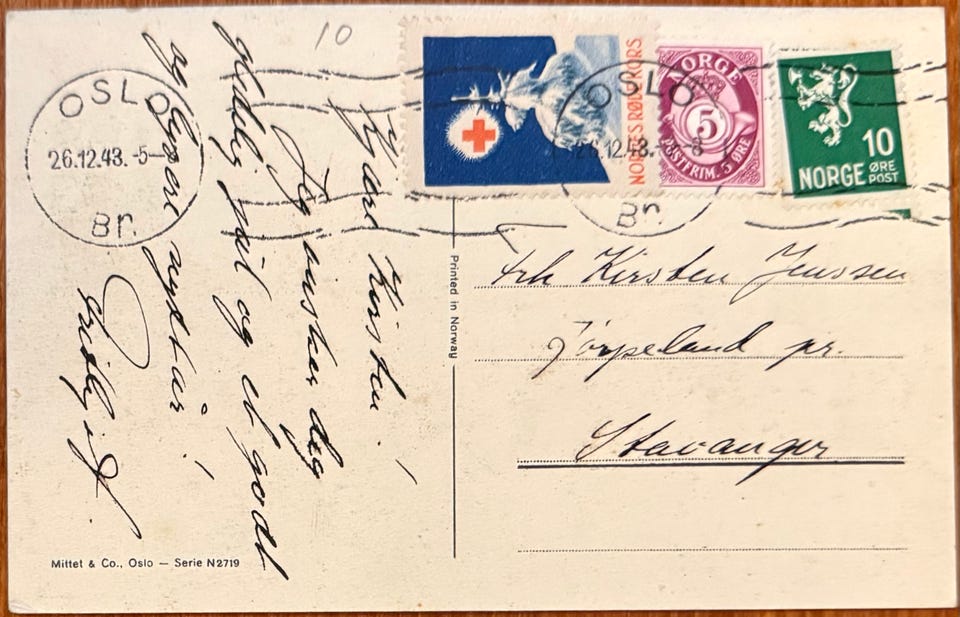 10
OSLO
26.12.43.-5-
Br.
NORGES RØDE KORS
NORGE
5
POSTFRIM. 5 ØRE
10
ØRE
NORGE POST
OSLO
26.12.43.-5-8
Br.
Kjære Kirsten!
Jeg ønsker deg
gledelig jul og et godt
og bedre nyttår!
Printed in Norway
Frk Kirsten Jenssen
Jørpeland pr.
Stavanger
Mittet & Co., Oslo — Serie N2719